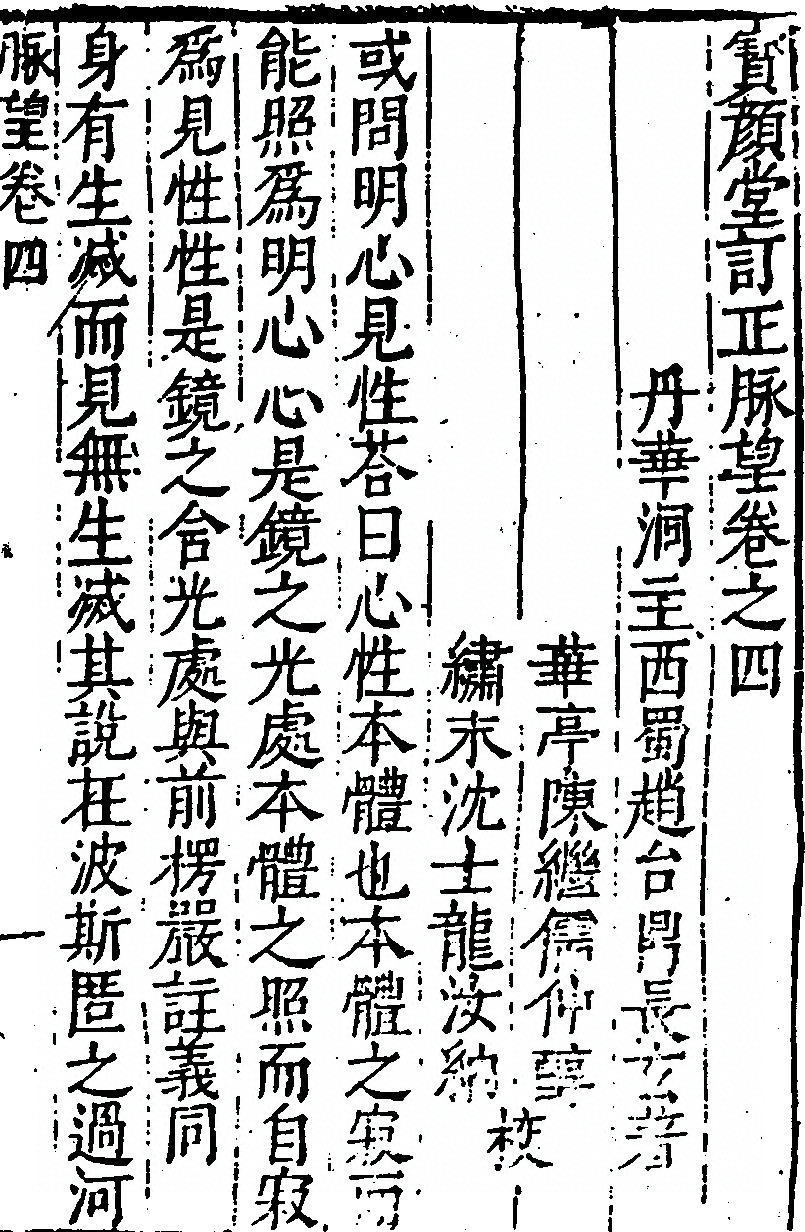 寳顏堂訂正脉望卷之四
丹華洞主西蜀趙台鼎長玄著
華亭陳繼儒仲醇
繡水沈士龍汝納
校
或問明心見性荅曰心性本體也本體之寂而
能照爲明心心是鏡之光處本體之照而自寂
爲見性性是鏡之含光處與前楞嚴註義同
身有生滅而見無生滅其說在波斯匿之過河
脉望卷四